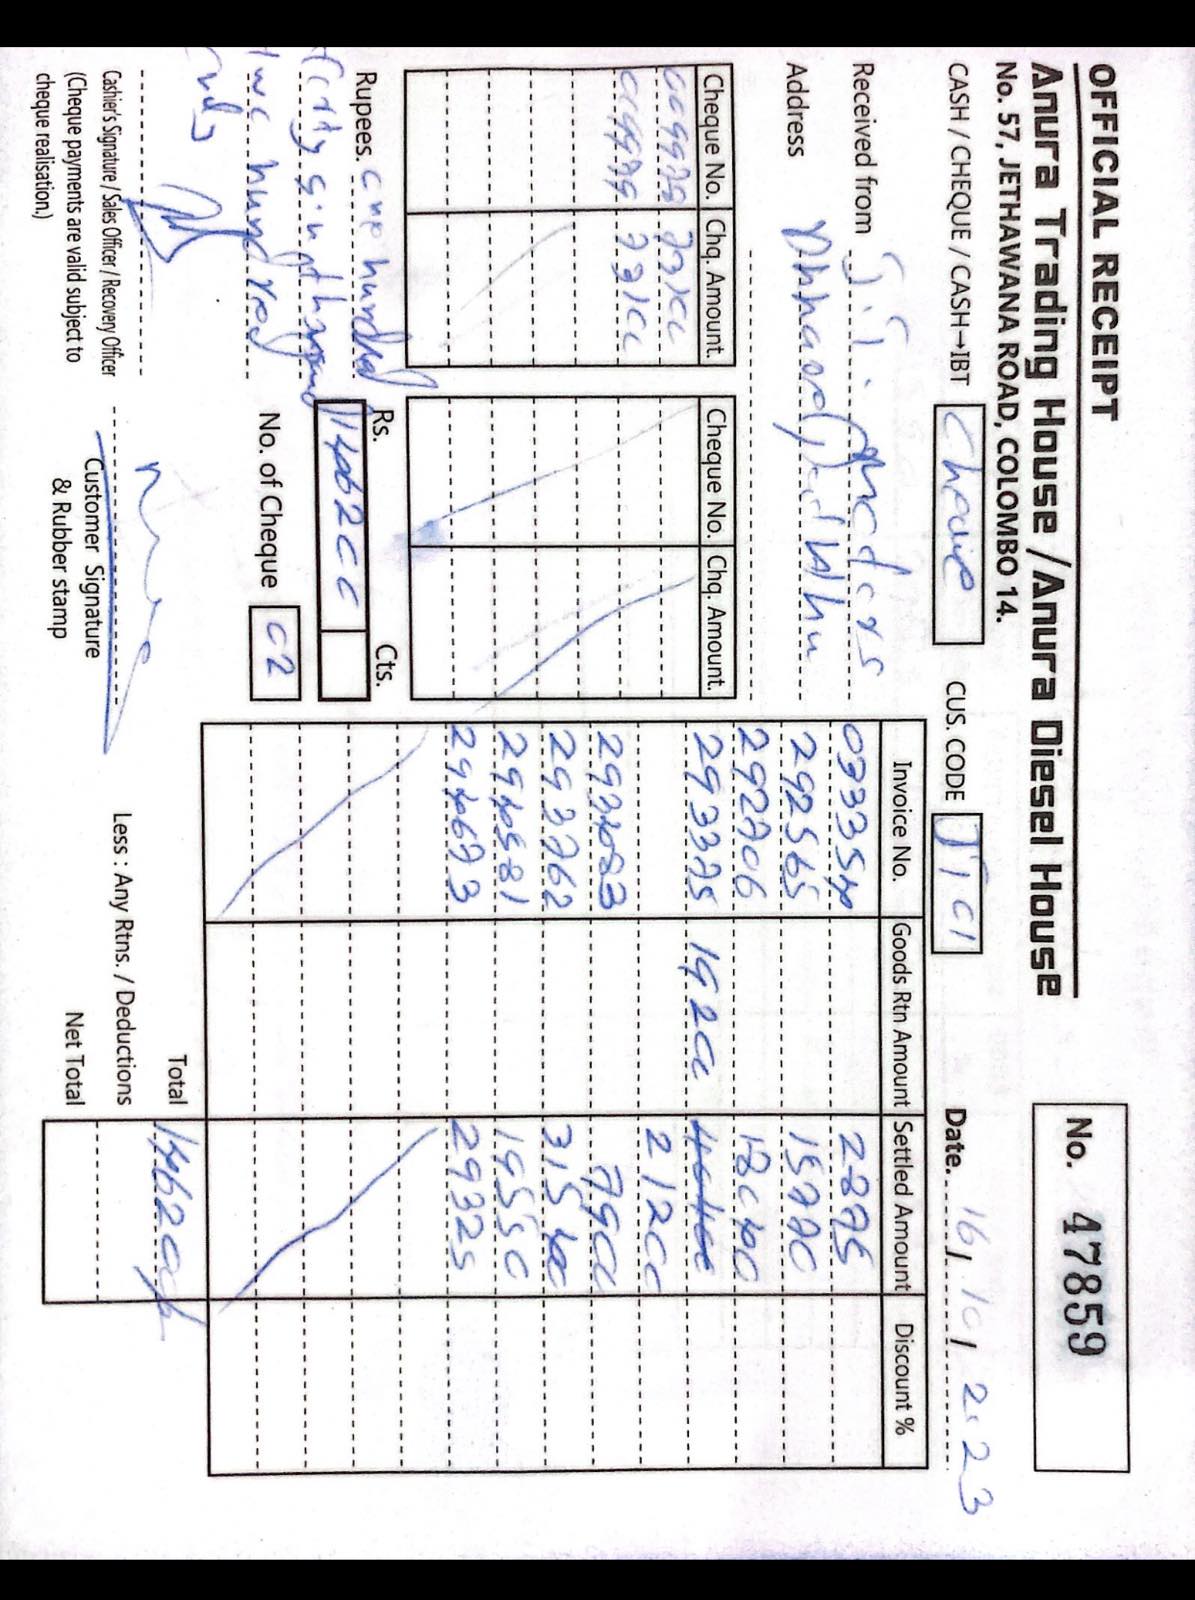 OFFICIAL RECEIPT
Anura Trading House / Anura Diesel House
No. 57, JETHAWANA ROAD, COLOMBO 14.
No. 47859
CASH / CHEQUE / CASH→IBT Cheque
CUS. CODE JTC1
Date. 16/10/2023
Received from J.T. Motors
Address
Cheque No. Chq. Amount. Cheque No. Chq. Amount.
009978 73100
009979 73100
Rupees. one hundred
forty six thousand
two hundred
only
Rs. Cts.
146200
No. of Cheque 02
Cashier's Signature / Sales Officer / Recovery Officer
(Cheque payments are valid subject to
cheque realisation.)
Customer Signature
& Rubber stamp
Invoice No. Goods Rtn Amount Settled Amount Discount %
033354 2875
292565 15770
292706 18040
293375 19200
21200
293483 7900
293762 31540
294581 19550
294673 29325
Total 146200
Less : Any Rtns. / Deductions
Net Total